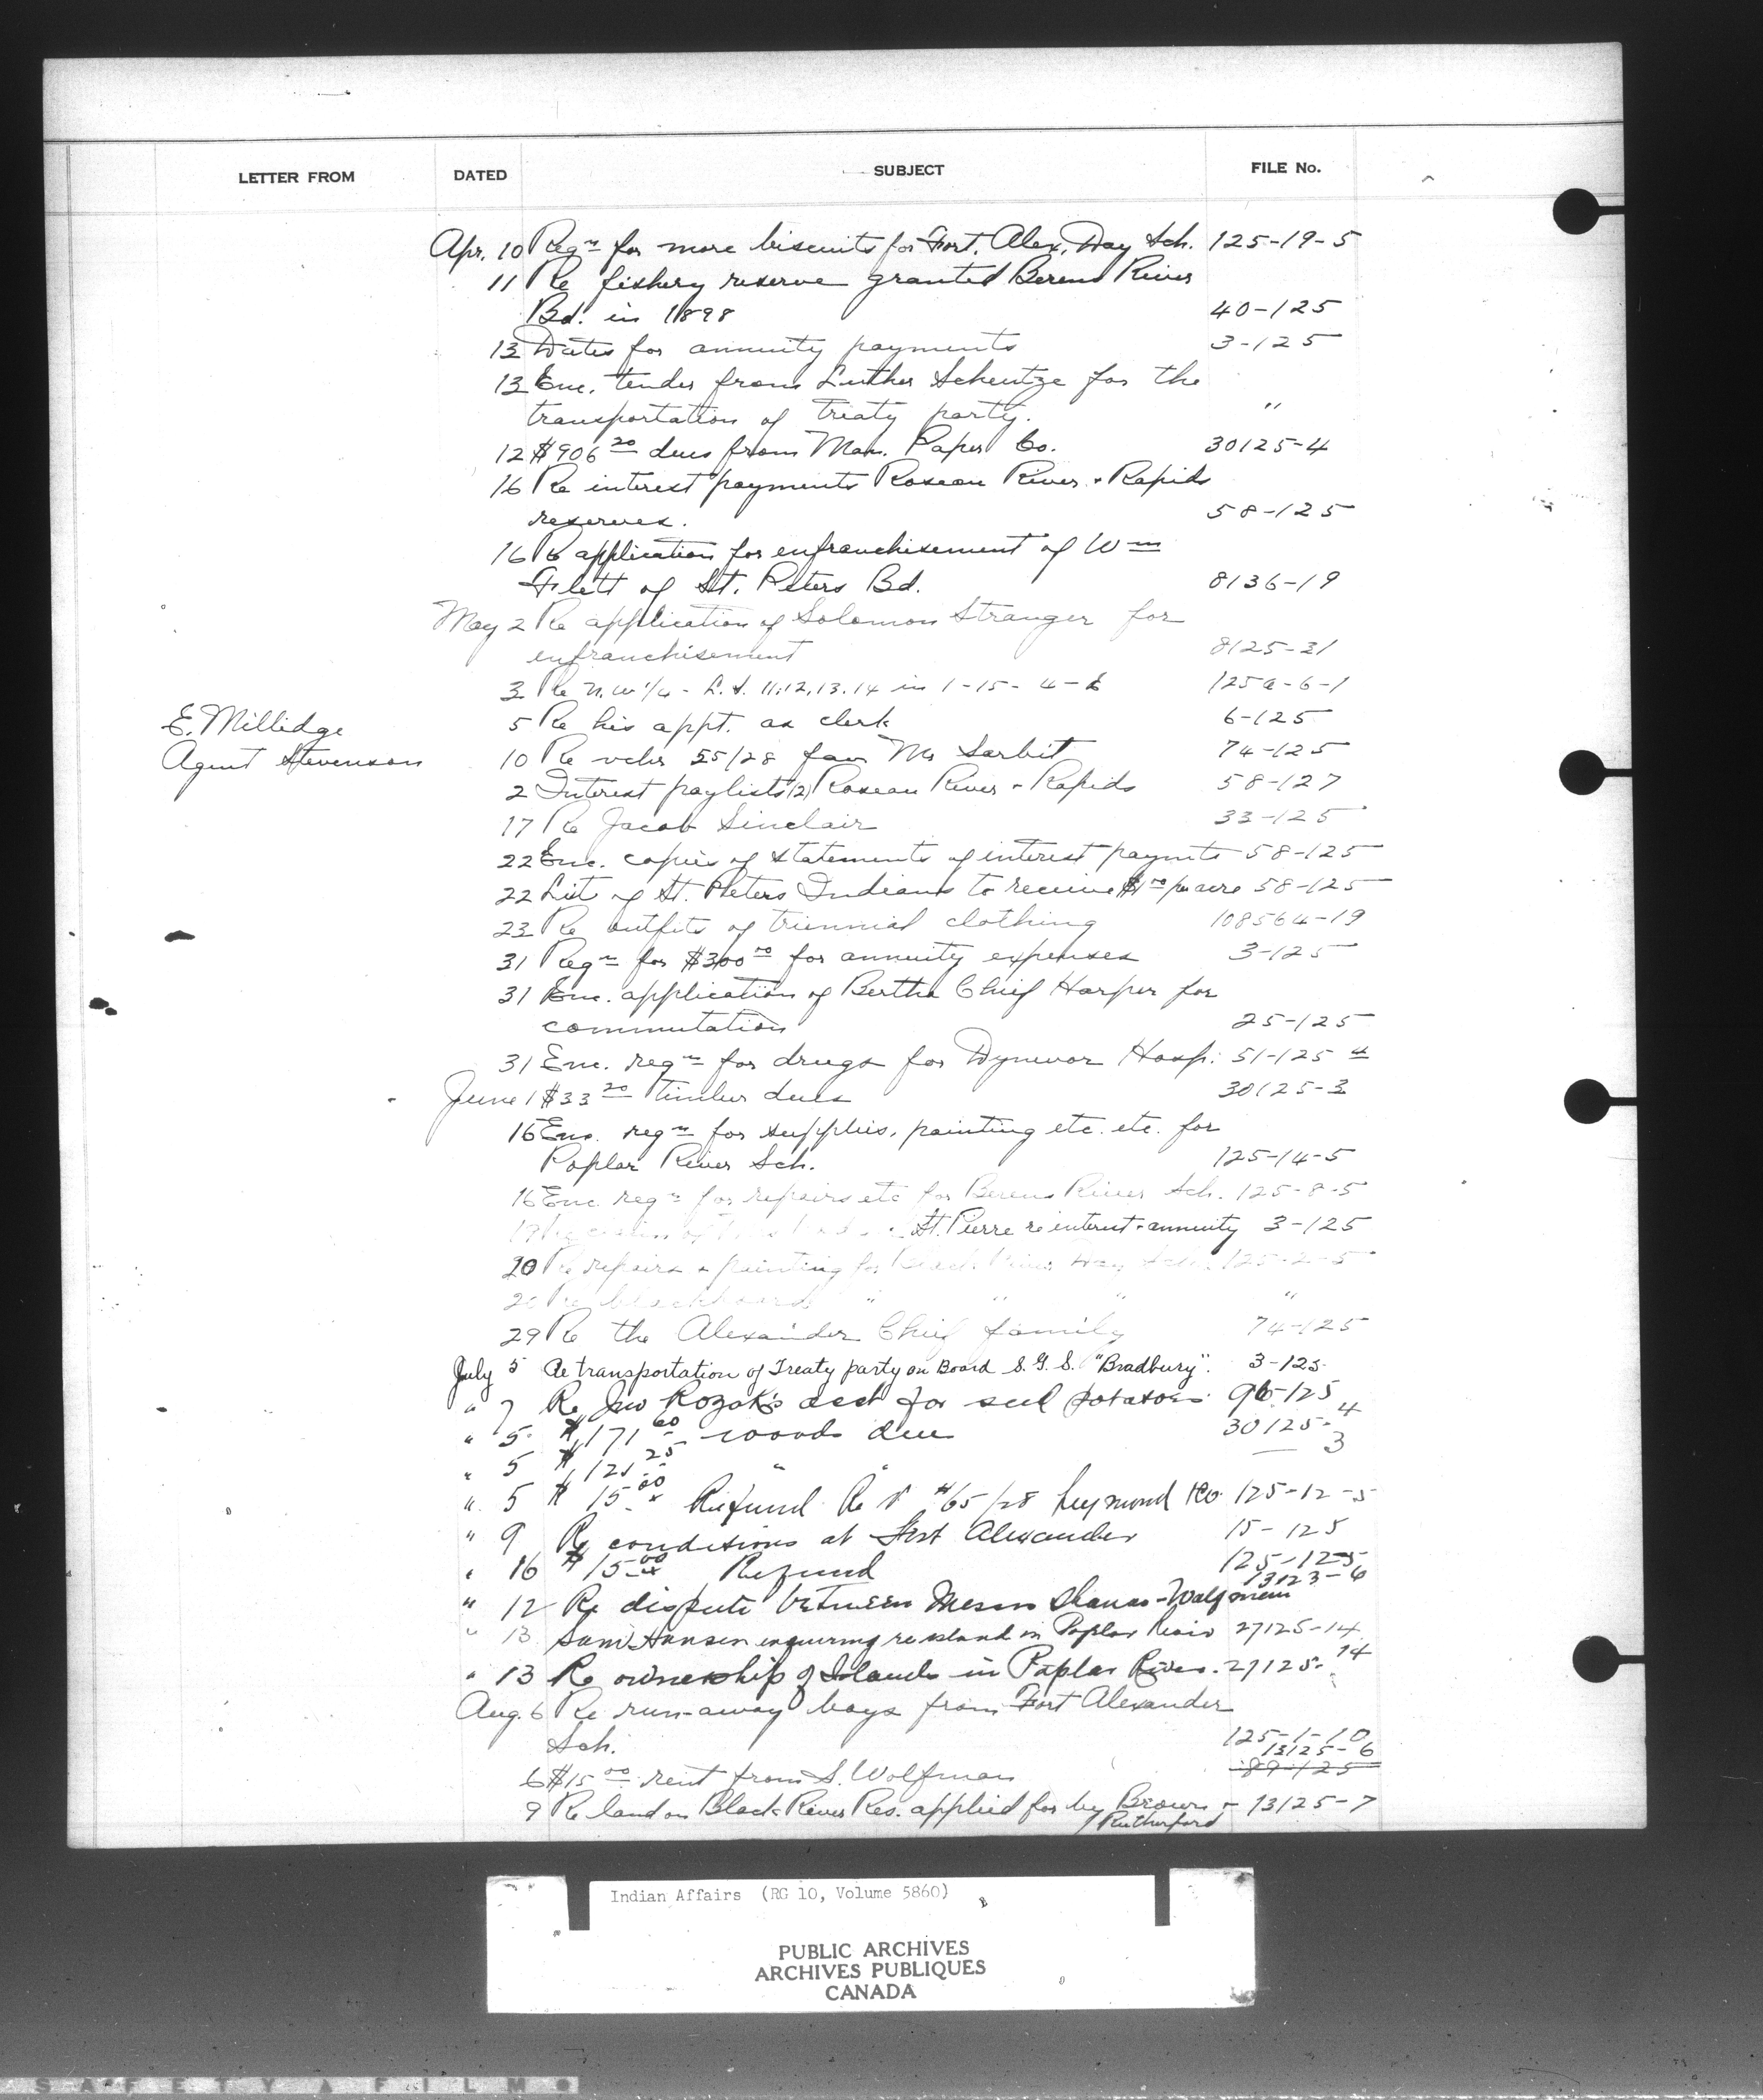 LETTER FROM DATED SUBJECT FILE No.
Apr. 10 Reqn for more biscuits for Fort. Alex. Day Sch. 125-19-5
11 Re fishery reserve granted Berens River
Bd. in 1898 40-125
13 Dates for annuity payments 3-125
13 Enc. tender from Luther Scheutze for the
transportation of treaty party. "
12 $906 20 dues from Man. Paper Co. 30125-4
16 Re interest payments Roseau River & Rapids
reserves. 58-125
16 Re application for enfranchisement of Wm
Flett of St. Peters Bd. 8136-19
May 2 Re application of Solomon Stranger for
enfranchisement 8125-31
3 Re N.W 1/4 - L.S. 11,12,13,14 in 1-15-4-E 125a-6-1
E. Millidge 5 Re his appt. as clerk 6-125
Agent Stevenson 10 Re vchr 55/28 fav Mr Sarbit 74-125
2 Interest paylists (2) Roseau River & Rapids 58-127
17 Re Jacob Sinclair 33-125
22 Enc. copies of statements of interest paymts 58-125
22 List of St. Peters Indians to receive $1 00 per acre 58-125
23 Re outfits of triennial clothing 108564-19
31 Reqn for $300 00 for annuity expenses 3-125
31 Enc. application of Bertha Chief Harper for
commutation 25-125
31 Enc. reqn for drugs for Dynevor Hosp. 51-125 4
June 1 $33 20 timber dues 30125-3
16 Enc. reqn for supplies, painting etc. etc. for
Poplar River Sch. 125-14-5
16 Enc reqn for repairs etc for Berens River Sch. 125-8-5
19 St. Pierre re interest & annuity 3-125
20 Re repairs & painting for Black River Day Sch. 125-2-5
20 Re blackboard " " " "
29 Re the Alexander Chief family 74-125
July 5 Re transportation of Treaty party on Board S.G.S. "Bradbury". 3-125
" 7 Re Jno Rozak's acct for seed potatoes 96-125
" 5 $171 60 woods dues 30125-4
" 5 $121 25 " " — 3
" 5 $15 00 Refund Re V #65/28 120 125-12-5
" 9 Re conditions at Fort Alexander 15-125
" 16 $15 00 Refund 125-12-5
13123-6
" 12 Re dispute between Messrs - Wolfman
" 13 Sam Hansen enquiring re island in Poplar River 27125-14
" 13 Re ownership of Islands in Poplar River. 27125-14
Aug. 6 Re run-away boys from Fort Alexander
Sch. 125-1-10
13125-6
6 $15 00 rent from S. Wolfman 89-125
9 Re land on Black River Res. applied for by Brown & 13125-7
Rutherford
Indian Affairs (RG 10, Volume 5860)
PUBLIC ARCHIVES
ARCHIVES PUBLIQUES
CANADA
SAFETY FILM